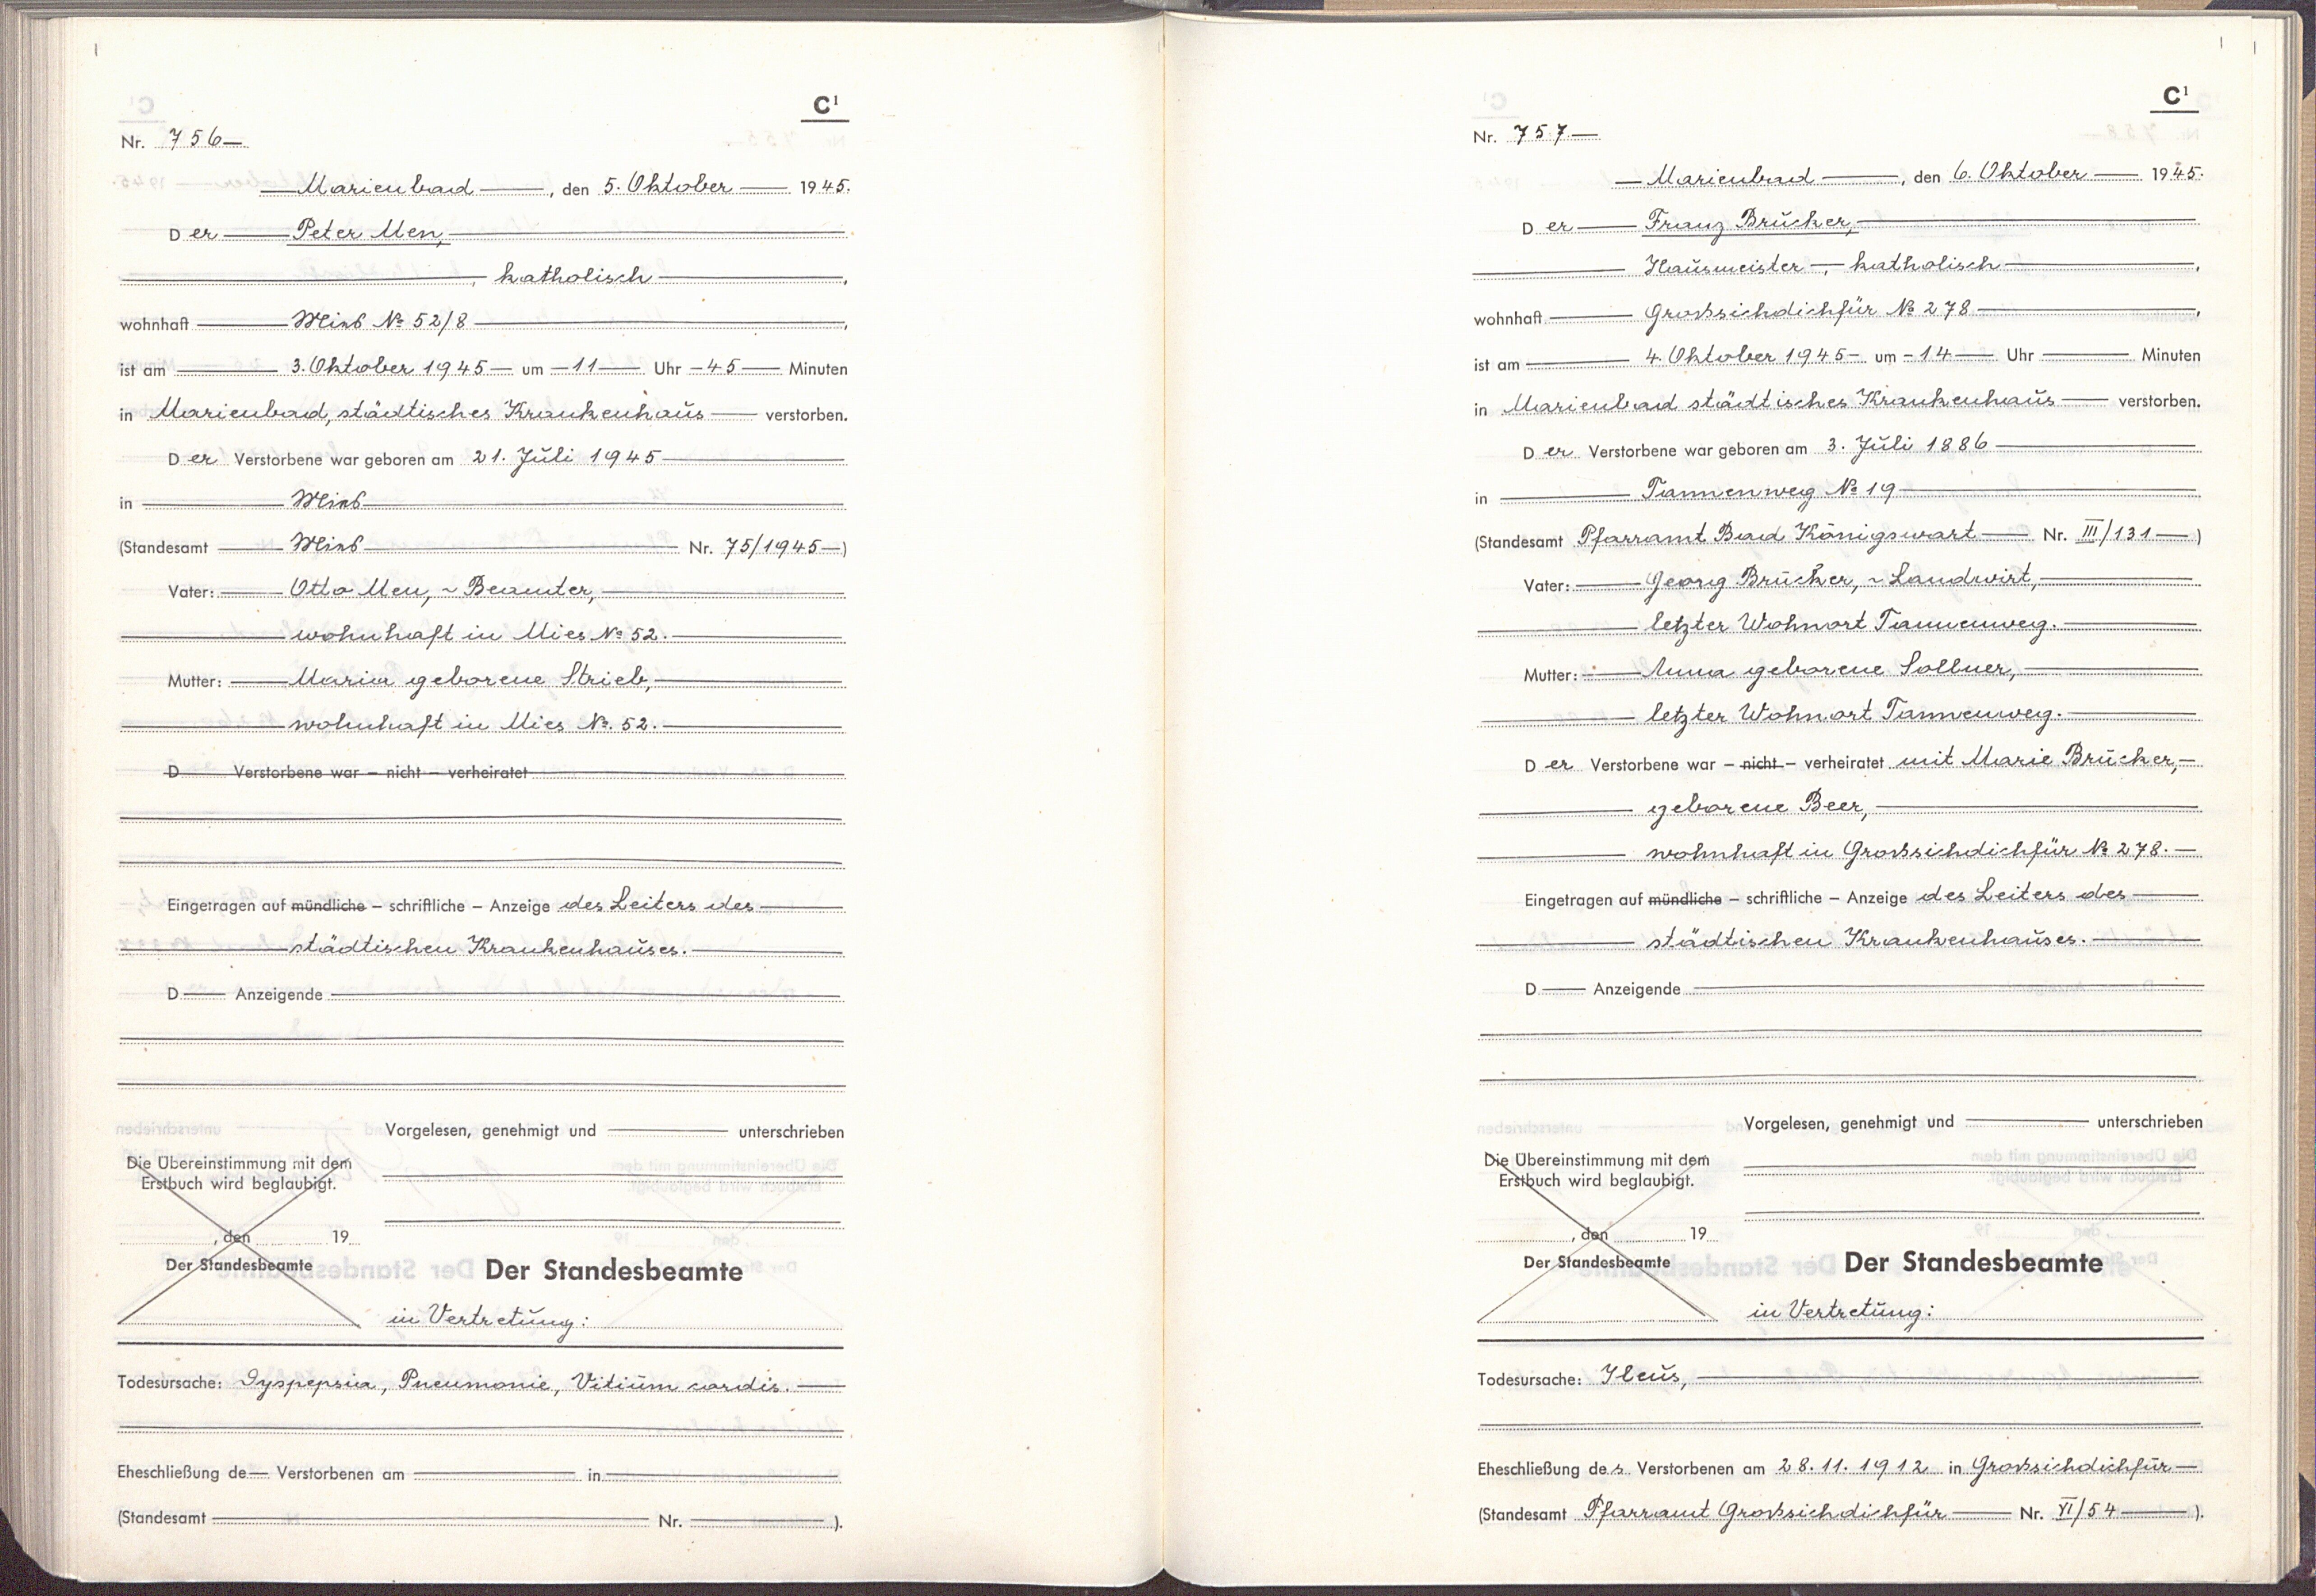 C¹
Nr. 756
Marienbad, den 5. Oktober 1945.
Der Peter Men,
, katholisch,
wohnhaft Mies № 52/8,
ist am 3. Oktober 1945 um 11 Uhr 45 Minuten
in Marienbad, städtisches Krankenhaus verstorben.
Der Verstorbene war geboren am 21. Juli 1945
in Mies
(Standesamt Mies Nr. 75/1945)
Vater: Otto Men, ~ Beamter,
wohnhaft in Mies № 52.
Mutter: Maria geborene Strieb,
wohnhaft in Mies №. 52.
D Verstorbene war – nicht – verheiratet
Eingetragen auf mündliche – schriftliche – Anzeige des Leiters des
städtischen Krankenhauses.
D Anzeigende
Vorgelesen, genehmigt und unterschrieben
Die Übereinstimmung mit dem
Erstbuch wird beglaubigt.
, den 19
Der Standesbeamte
Der Standesbeamte
in Vertretung:
Todesursache: Dyspepsia, Pneumonie, Vitium cordis.
Eheschließung de Verstorbenen am in
(Standesamt Nr. ).
C¹
Nr. 757
Marienbad, den 6. Oktober 1945.
Der Franz Brücker,
Hausmeister, katholisch,
wohnhaft Großsichdichfür № 278,
ist am 4. Oktober 1945 um 14 Uhr Minuten
in Marienbad städtisches Krankenhaus verstorben.
Der Verstorbene war geboren am 3. Juli 1886
in Tannenweg № 19
(Standesamt Pfarramt Bad Königswart Nr. III/131)
Vater: Georg Brücker, ~ Landwirt,
letzter Wohnort Tannenweg.
Mutter: Anna geborene Sollner,
letzter Wohnort Tannenweg.
Der Verstorbene war – nicht – verheiratet mit Marie Brücker,
geborene Beer,
wohnhaft in Großsichdichfür № 278.
Eingetragen auf mündliche – schriftliche – Anzeige des Leiters des
städtischen Krankenhauses.
D Anzeigende
Vorgelesen, genehmigt und unterschrieben
Die Übereinstimmung mit dem
Erstbuch wird beglaubigt.
, den 19
Der Standesbeamte
Der Standesbeamte
in Vertretung:
Todesursache: Ileus,
Eheschließung des Verstorbenen am 28.11.1912 in Großsichdichfür
(Standesamt Pfarramt Großsichdichfür Nr. VI/54).